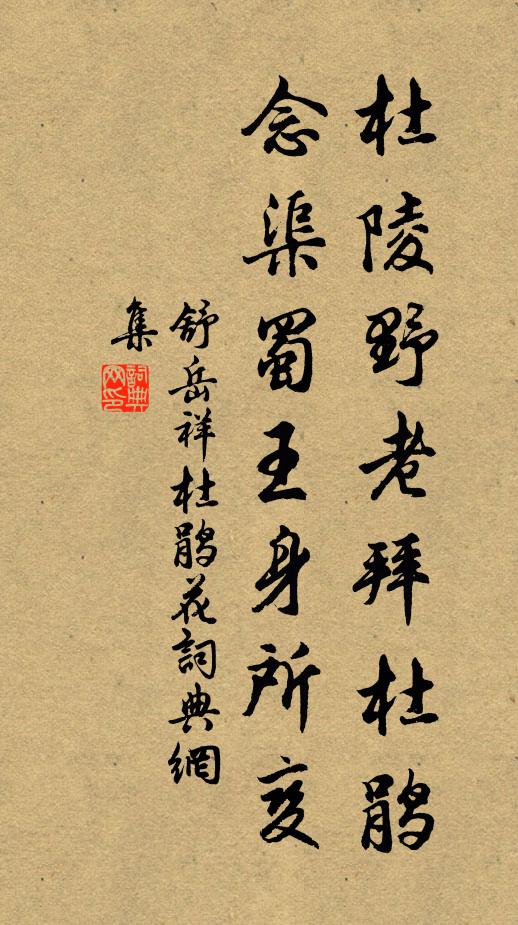 杜陵野老拜杜鹃
念渠蜀王身所变
舒岳祥杜鹃花詞典網
集
詞典
网印